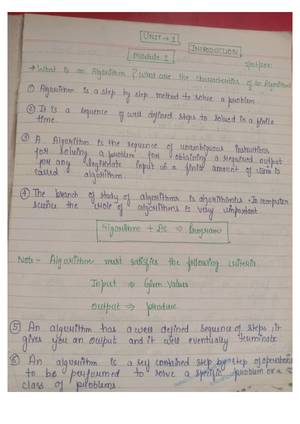 UNIT → 1
INTRODUCTION
Module 1
→ What is an Algorithm? What are the characteristics of an Algorithm
① Algorithm is a step by step method to solve a problem
② It is a sequence of well defined steps to solved in a finite
time.
③ A Algorithm is the sequence of unambiguous instructions
for solving a problem for obtaining a required output
for any legitimate input in a finite amount of time is
called algorithm.
④ The branch of study of algorithms is algorithmics. In computer
science the role of algorithms is very important
Algorithm + DS ⇒ Program
Note - Algorithm must satisfies the following criteria
Input ⇒ Given Values
Output ⇒ produce
⑤ An algorithm has a well defined sequence of steps, it
gives you an output and it will eventually terminate
⑥ An algorithm is a self contained step by step of operations
to be performed to solve a specific problem or a
class of problems.